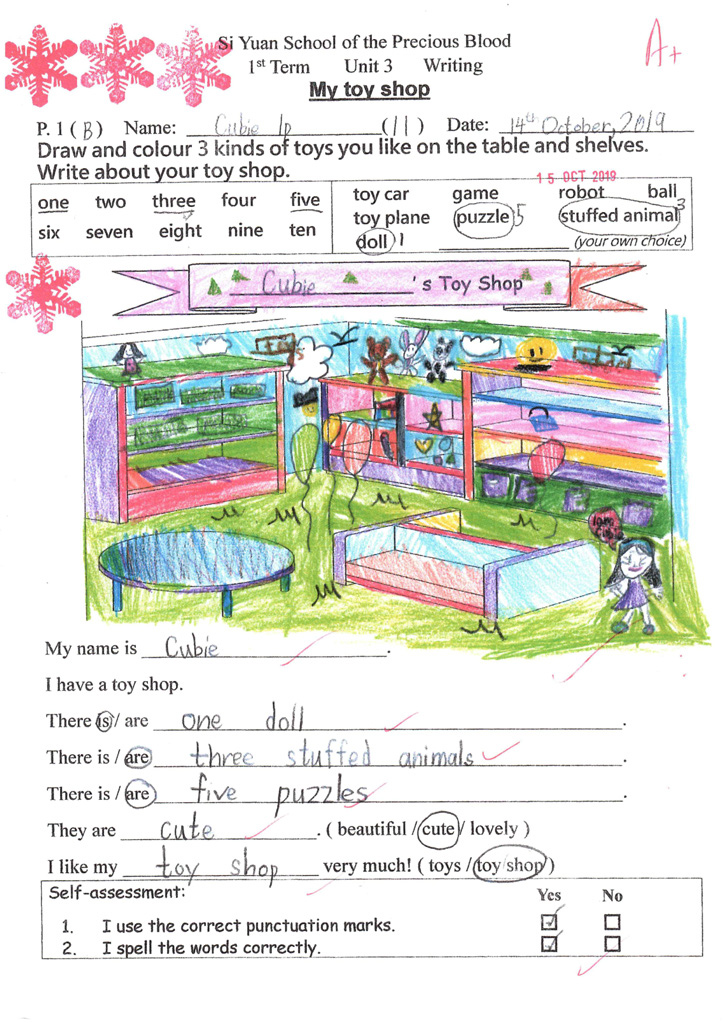 Si Yuan School of the Precious Blood
A+
1st Term Unit 3 Writing
My toy shop
P. 1 ( B ) Name: Cubie Ip ( 11 ) Date: 14th October, 2019
Draw and colour 3 kinds of toys you like on the table and shelves.
Write about your toy shop.
15 OCT 2019
one two three four five
six seven eight nine ten
toy car game robot ball
toy plane puzzle 5 stuffed animal 3
doll 1 (your own choice)
Cubie 's Toy Shop
My name is Cubie .
I have a toy shop.
There is / are one doll .
There is / are three stuffed animals .
There is / are five puzzles .
They are cute . ( beautiful / cute / lovely )
I like my toy shop very much! ( toys / toy shop )
Self-assessment:
Yes No
1. I use the correct punctuation marks.
2. I spell the words correctly.